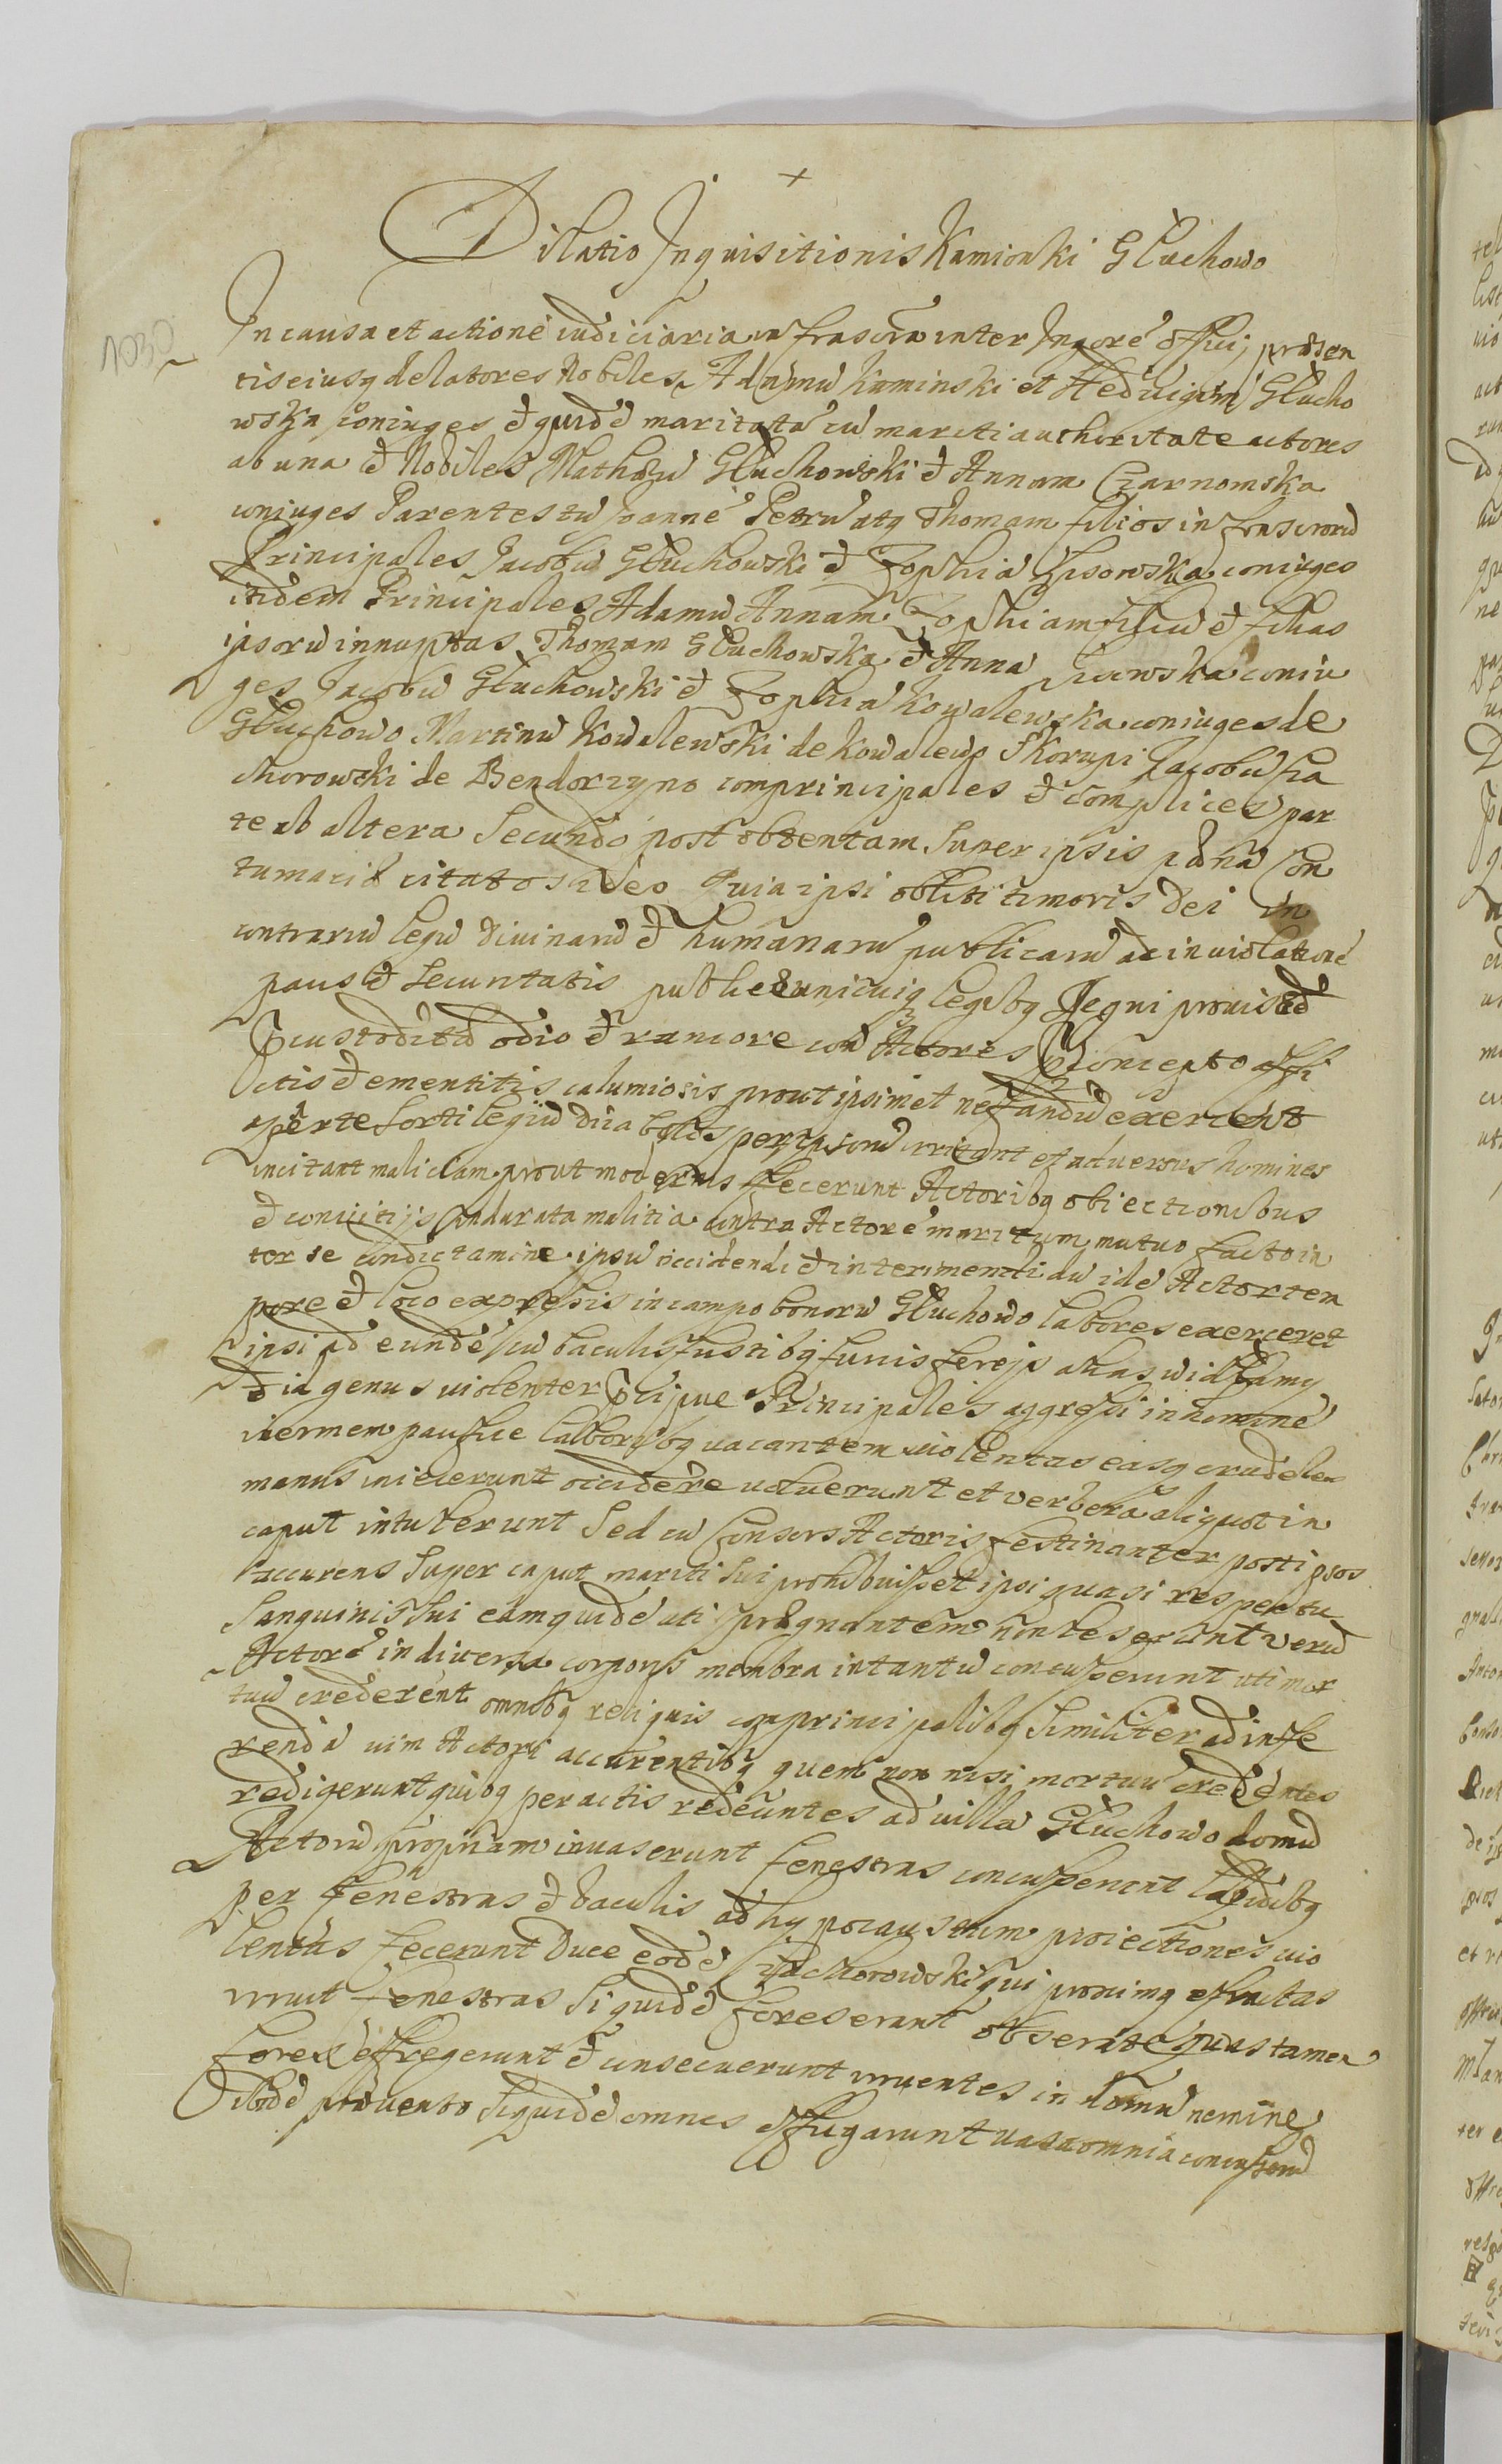 Dilatio Inquisitionis Kamionki Głuchowo
1030
In causa et actione iudiciaria infrascra inter Inqore officij præsen
tis eiusq delatores Nobiles Adamu Kaminski et Heduigim Głucho
wska coniuges et quide maritata cu mariti authoritate actores
ab una et Nobiles Mathæu Głuchowski et Annam Czarnomska
coniuges Parentes tu Joanne Petru atq Thomam filios infrascroru
Principales Jacobu Głuchowski et Zophia Lisowska coniuges
itidem Principales Adamu Annam Zophiam filiu et filias
ipsoru innuptas Thomam Głuchowska et Anna coniu
ges Jacobu Głuchowski et Zophia Kowalewska coniuges de
Głuchowo Martinu Kowalewski de Kowalewo Skorupi Jacobu Za
chorowski de Bendorzyno comprincipales et complices par
te ab altera Secundo post obtentam super ipsis pœna con
tumaciæ citatos ideo Quia ipsi obliti timoris Dei in
contrariu legu diuinaru et humanaru publicaru ac in uiolatione
pacis et securitatis publicæ unicuiq legibq Regni prouisæ et
custodita odio et rancore con Actores concepto affi
ctis et ementitis calumiosis prout ipsimet nefandu exercent
aperte sortilegiu diabolos per ipsoru irritant et aduersus homines
incitant maliciam prout modernis fecerunt Actoribq obiectionibus
et conuitijs indurata malitia contra Actore maritum mutuo facto in
ter se condictamine ipsu occidendi et interimendi du ide Actor tem
pore et loco expressis in campo bonoru Głuchowo labores exerceret
ipsi ad eunde cu baculis fustibq furcis ferejs alias widłamy
et id genus uiolenter Principales aggressi in homine
inermem pacifice laboribq uacantem uiolentas easq crudeles
manus iniecerunt occidere uoluerunt et verbera aliquot in
caput intulerunt Sed cu Consors Actoris festinanter post ipsos
accurens super caput mariti sui prohibuisset ipsi quasi respectu
Sanguinis sui eam quide uti prægnantem non leserunt veru
Actore in diuersa corporis membra intantu concusserunt uti mor
tuu crederent omnibq reliquis comprincipalibq similiter ad infe
renda uim Actori accurentibq quem non nisi mortuu credentes
redigerunt quibq peractis redeuntes ad villa Głuchowo domu
Actoru propriam inuaserunt fenestras concusserunt lapidibq
per fenestras et baculis ad hypocaustum proiectiones uio
lentas fecerunt Duce eode Zachorowski qui proximq effractas
irruit fenestras siquide fores erant obseratæ quas tamen
fores effregerunt et consecuerunt irruentes in domu nemine
ibide prouento siquide omnes effugarunt uasa omnia concusseru